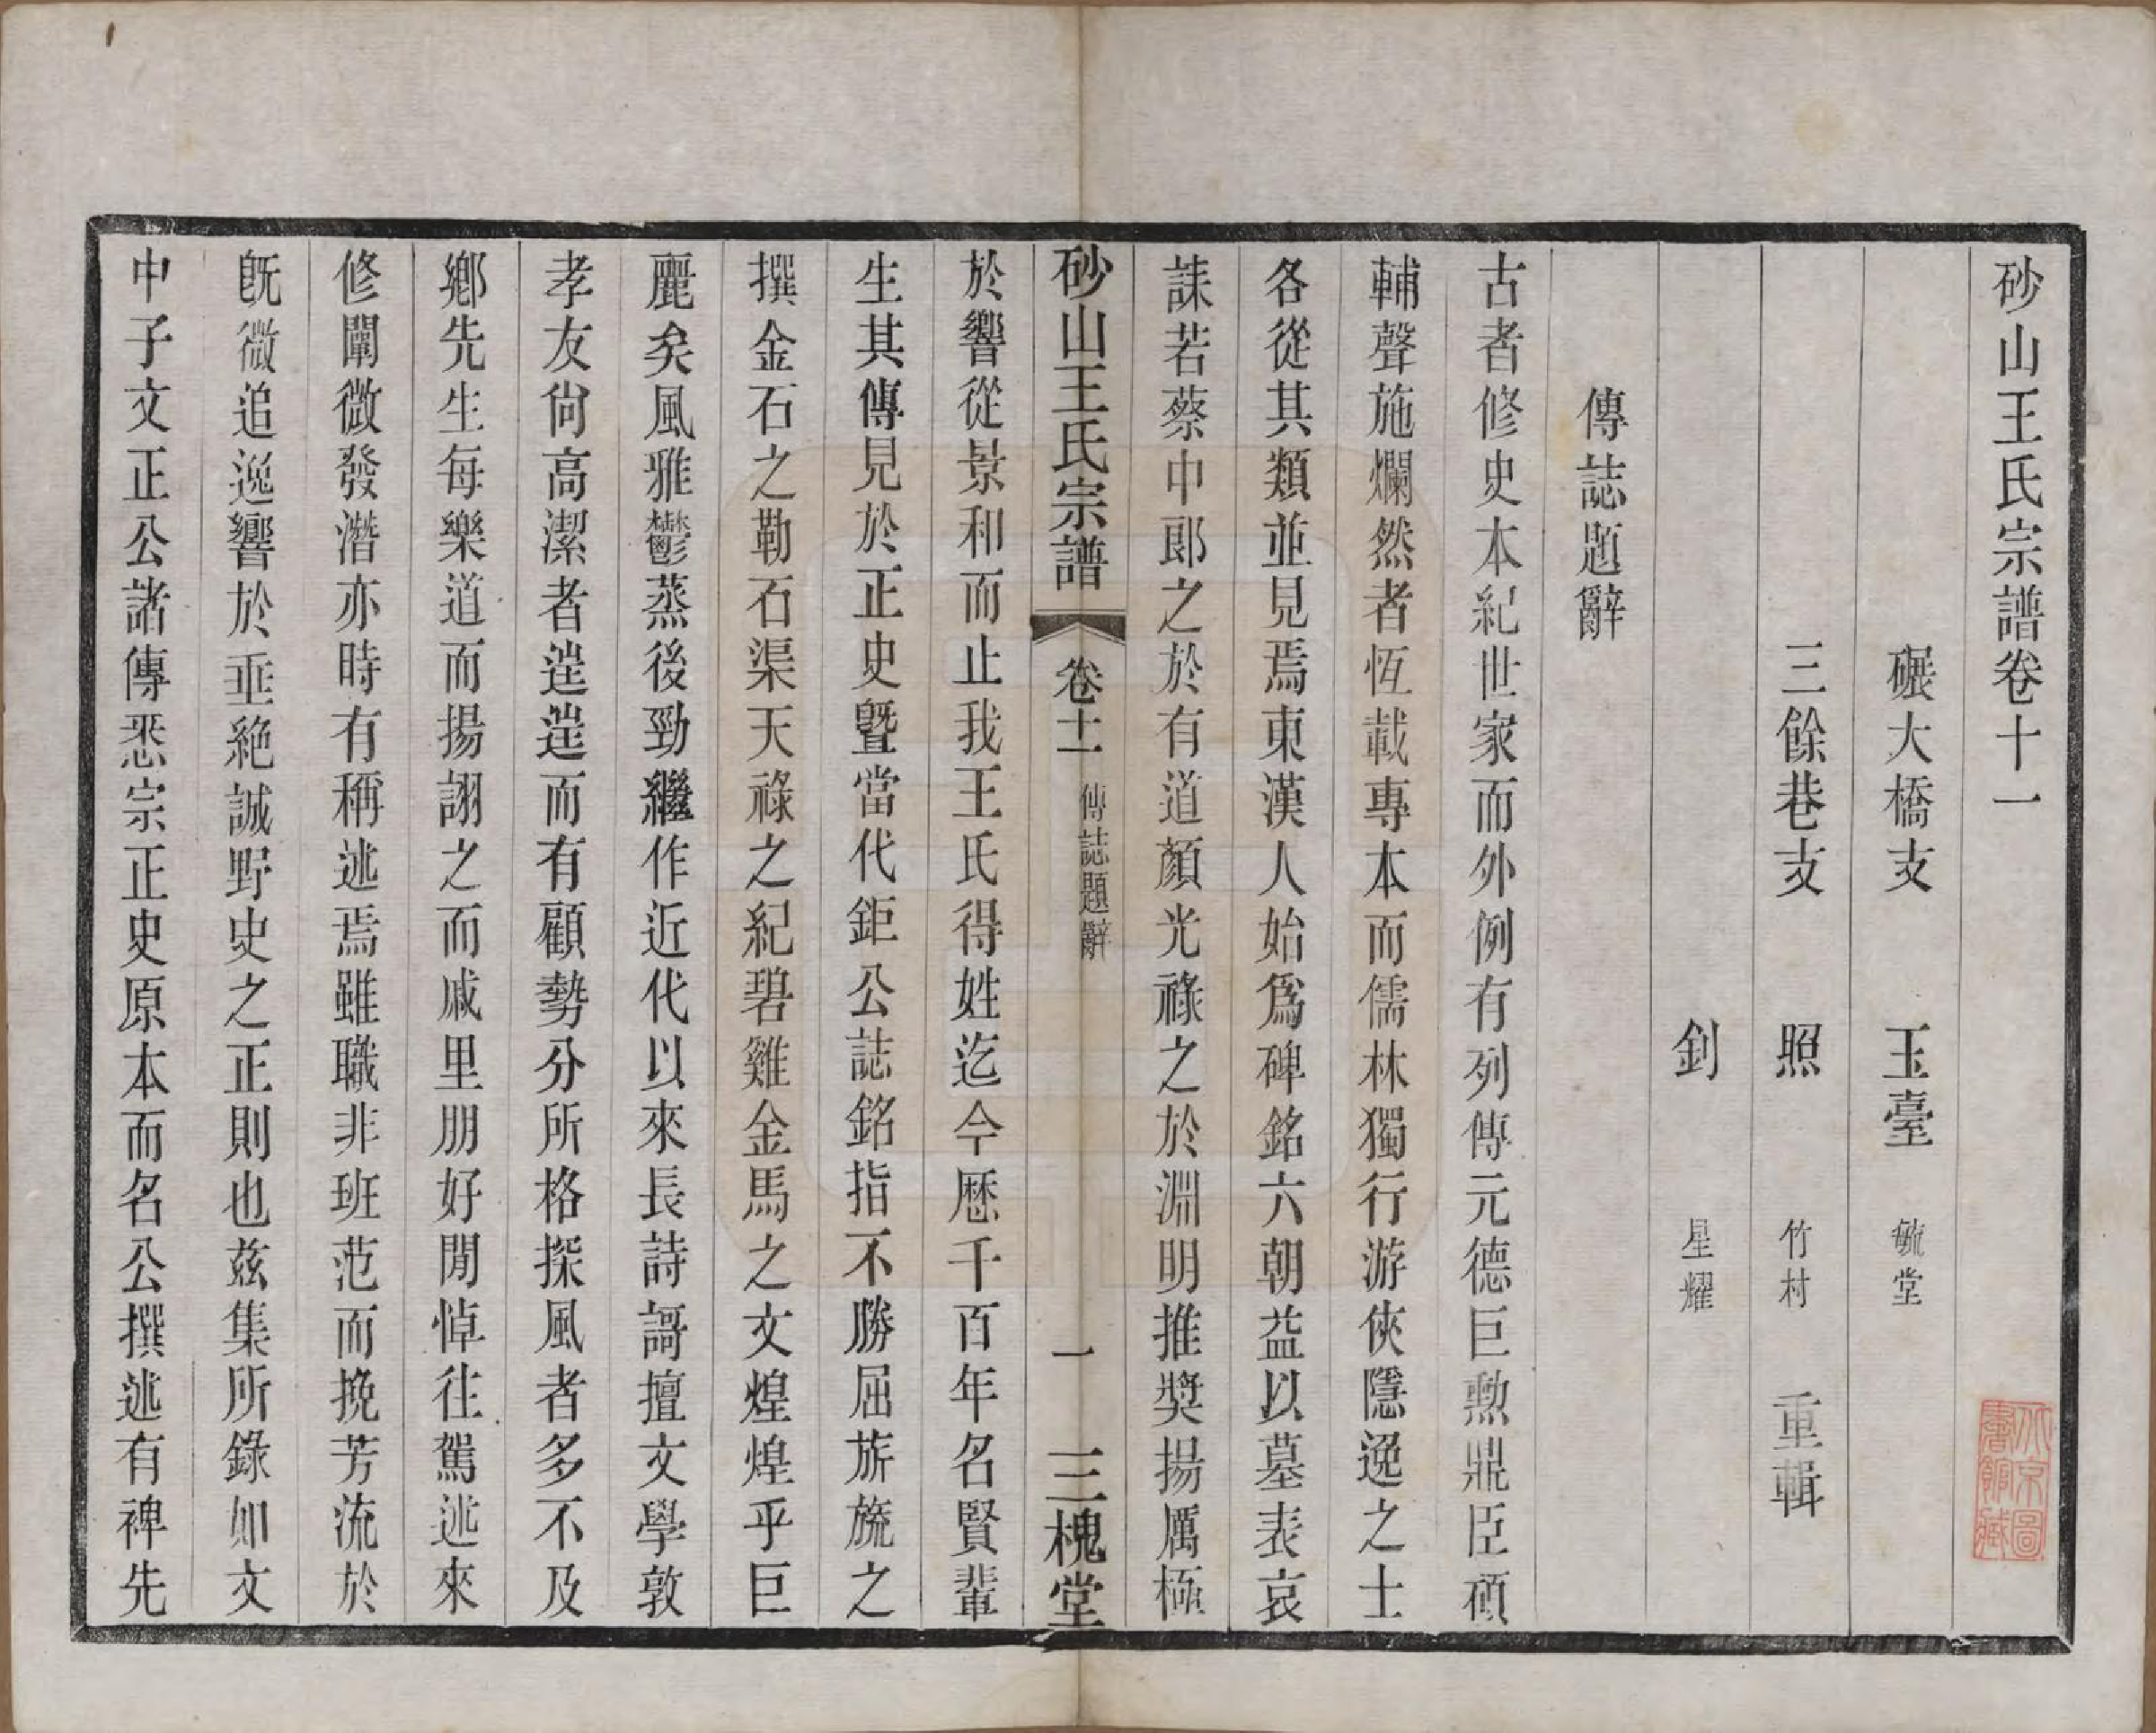 砂山王氏宗譜卷十一
碾大橋支　玉臺　毓堂
三餘巷支　照　竹村　重輯
釗　星耀
傳誌題辭
古者修史本紀世家而外例有列傳元德巨勲鼎臣碩
輔聲施爛然者恆載專本而儒林獨行游俠隱逸之士
各從其類並見焉東漢人始爲碑銘六朝益以墓表哀
誄若蔡中郎之於有道顏光祿之於淵明推獎揚厲極
砂山王氏宗譜　卷十一　傳誌題辭　一　三槐堂
於響從景和而止我王氏得姓迄今歷千百年名賢輩
生其傳見於正史曁當代鉅公誌銘指不勝屈旂旒之
撰金石之勒石渠天祿之紀碧雞金馬之文煌煌乎巨
麗矣風雅鬱蒸後勁繼作近代以來長詩謌擅文學敦
孝友尙高潔者逬逬而有顧勢分所格採風者多不及
鄕先生每樂道而揚詡之而戚里朋好閒悼往駕述來
修闡微發潛亦時有稱述焉雖職非班范而挽芳流於
旣微追逸響於垂絶誠野史之正則也茲集所錄如文
中子文正公諸傳悉宗正史原本而名公撰述有裨先
北京圖
書館藏